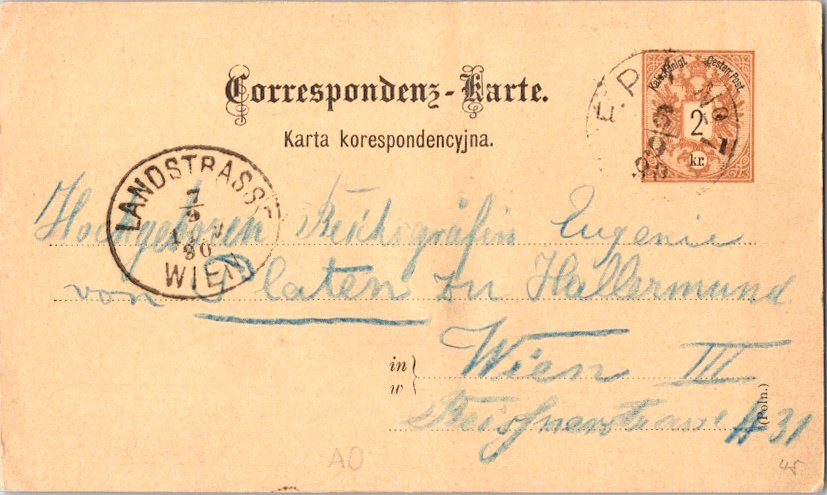 Correspondenz-Karte.
Karta korespondencyjna.
Kais. Königl. Oesterr. Post
2
kr.
LANDSTRASSE
7/9
90
WIEN
Hochgeboren Reichsgräfin Eugenie
von Platen zu Hallermund
in
w
Wien III
Reisnerstrasse # 31
(Poln.)
AO
45